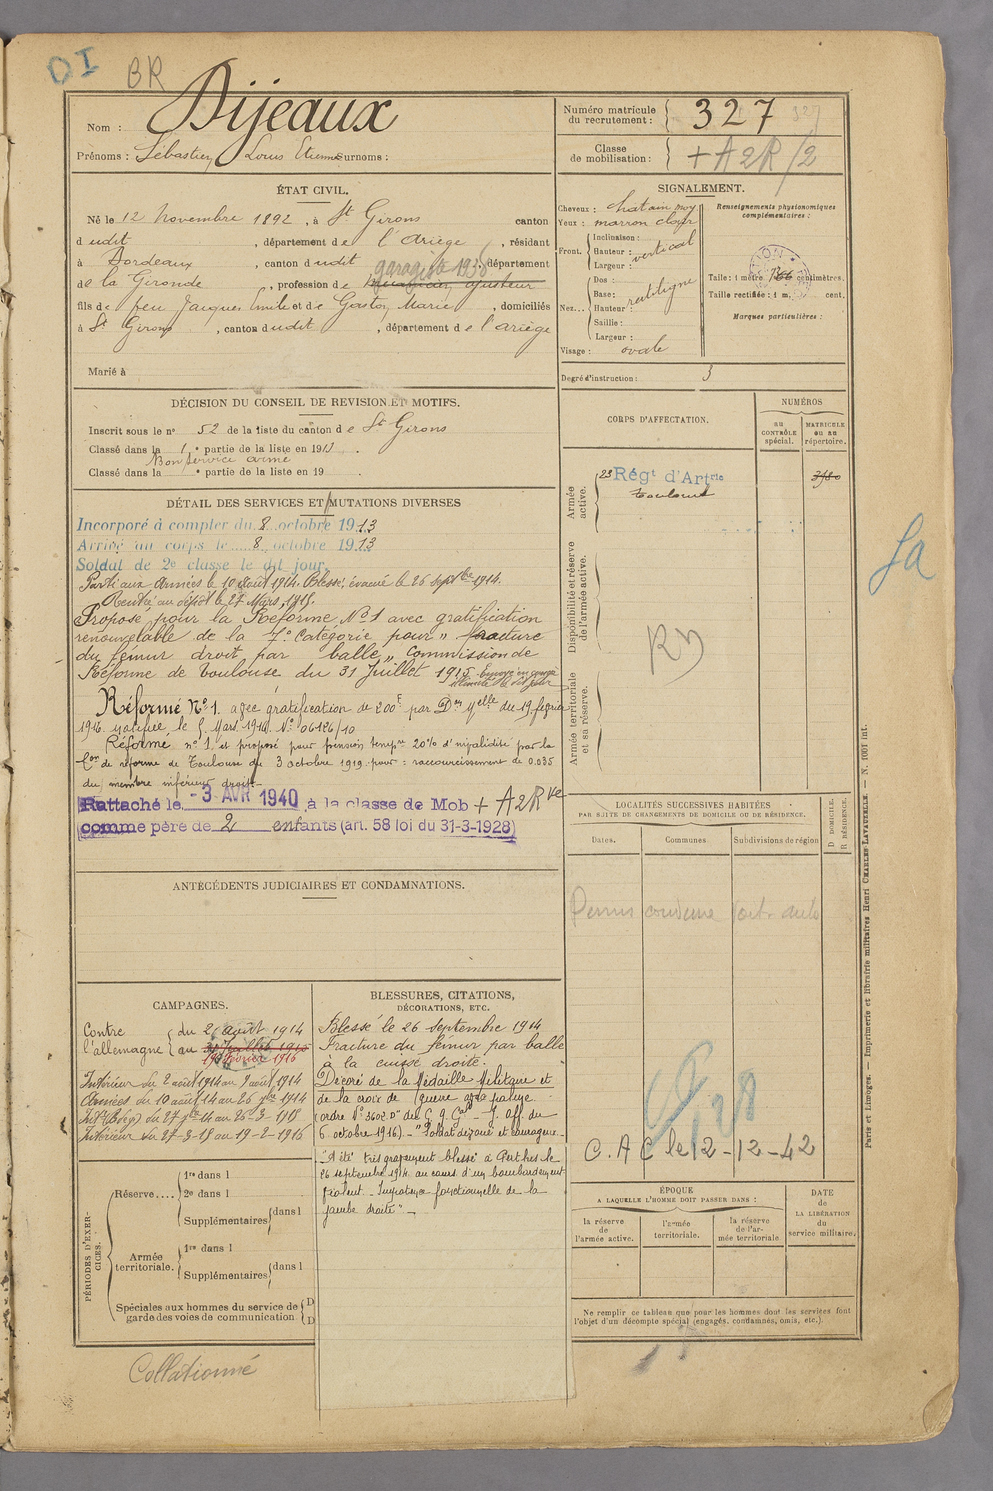 DI
BR
Nom : Dijeaux
Prénoms : Sébastien Louis Etienne Surnoms :
Numéro matricule du recrutement : 327
Classe de mobilisation : + A2R/2
ÉTAT CIVIL.
Né le 12 Novembre 1892, à St Girons canton
dudit, département de l'Ariège, résidant
à Bordeaux, canton dudit garagiste 1938, département
de la Gironde, profession de ajusteur
fils de feu Jacques Emile et de Gaston Marie, domiciliés
à St Girons, canton dudit, département de l'ariège
Marié à
SIGNALEMENT.
Cheveux : chatain moy
Yeux : marron clair
Front. Inclinaison :
Hauteur : vertical
Largeur :
Nez... Dos :
Base : rectiligne
Hauteur :
Saillie :
Largeur :
Visage : ovale
Renseignements physionomiques complémentaires :
Taille : 1 mètre centimètres.
Taille rectifiée : 1 m. cent.
Marques particulières :
Degré d'instruction : 3
DÉCISION DU CONSEIL DE REVISION ET MOTIFS.
Inscrit sous le n° 52 de la liste du canton de St Girons
Classé dans la 1 e partie de la liste en 1913.
Bon service armé
Classé dans la e partie de la liste en 19 .
DÉTAIL DES SERVICES ET MUTATIONS DIVERSES
Incorporé à compter du 8 octobre 1913
Arrivé au corps le 8 octobre 1913
Soldat de 2e classe le dit jour.
Parti aux Armées le 10 août 1914. Blessé, évacué le 26 septbre 1914.
Rentré au dépôt le 27 Mars 1915.
Proposé pour la Réforme N°1 avec gratification
renouvelable de la 7e Catégorie pour "fracture
du fémur droit par balle" Commission de
Réforme de Toulouse du 31 Juillet 1915
Réformé N°1. avec gratification de 200f par Don Melle du 19 février
1916 notifiée le 5 Mars 1916 N° 06126/10
Réforme n° 1 et proposé pour pension tempre 20% d'invalidité par la
Con de réforme de Toulouse du 3 octobre 1919 pour : raccourcissement de 0.035
du membre inférieur droit-
Rattaché le - 3 AVR 1940, à la classe de Mob + A2Rve
comme père de 2 enfants (art. 58 loi du 31-3-1928)
CORPS D'AFFECTATION.
NUMÉROS
au CONTRÔLE spécial.
MATRICULE ou au répertoire.
Armée active.
23 Régt d'Artrie
Toulouse
Disponibilité et réserve de l'armée active.
Armée territoriale et sa réserve.
Sa
LOCALITÉS SUCCESSIVES HABITÉES
PAR SUITE DE CHANGEMENTS DE DOMICILE OU DE RÉSIDENCE.
Dates.
Communes
Subdivisions de région
D DOMICILE.
R RÉSIDENCE.
Permis conduire auto
C.A.C le 12-12-42
ANTÉCÉDENTS JUDICIAIRES ET CONDAMNATIONS.
CAMPAGNES.
Contre l'allemagne
du 2 août 1914
au 31 Juillet 1915
19 février 1916
Intérieur du 2 août 1914 au 9 août 1914
Armées du 10 août 14 au 26 7bre 1914
Intr (Bdeg) du 27 7bre 14 au 26-3-1915
Intérieur du 27-3-15 au 19-2-1916
BLESSURES, CITATIONS,
DÉCORATIONS, ETC.
Blessé le 26 Septembre 1914
Fracture du fémur par balle
à la cuisse droite.
Décoré de la Médaille Militaire et
de la croix de Guerre avec palme
(ordre n° 3602.D du G.Q.Gal - J. Off. du
6 octobre 1916). - "Soldat dévoué et courageux.
A été très grièvement blessé à Perthes le
26 septembre 1914, au cours d'un bombardement
violent. Impotence fonctionnelle de la
jambe droite". -
PÉRIODES D'EXERCICES.
Réserve....
1re dans l
2e dans l
Supplémentaires dans l
Armée territoriale.
1re dans l
Supplémentaires dans l
Spéciales aux hommes du service de garde des voies de communication
D
D
ÉPOQUE
A LAQUELLE L'HOMME DOIT PASSER DANS :
la réserve de l'armée active.
l'armée territoriale.
la réserve de l'armée territoriale
DATE de LA LIBÉRATION du service militaire.
Ne remplir ce tableau que pour les hommes dont les services font
l'objet d'un décompte spécial (engagés, condamnés, omis, etc.).
Collationné
Paris et Limoges. — Imprimerie et librairie militaires Henri CHARLES-LAVAUZELLE. — N. 1001 int.